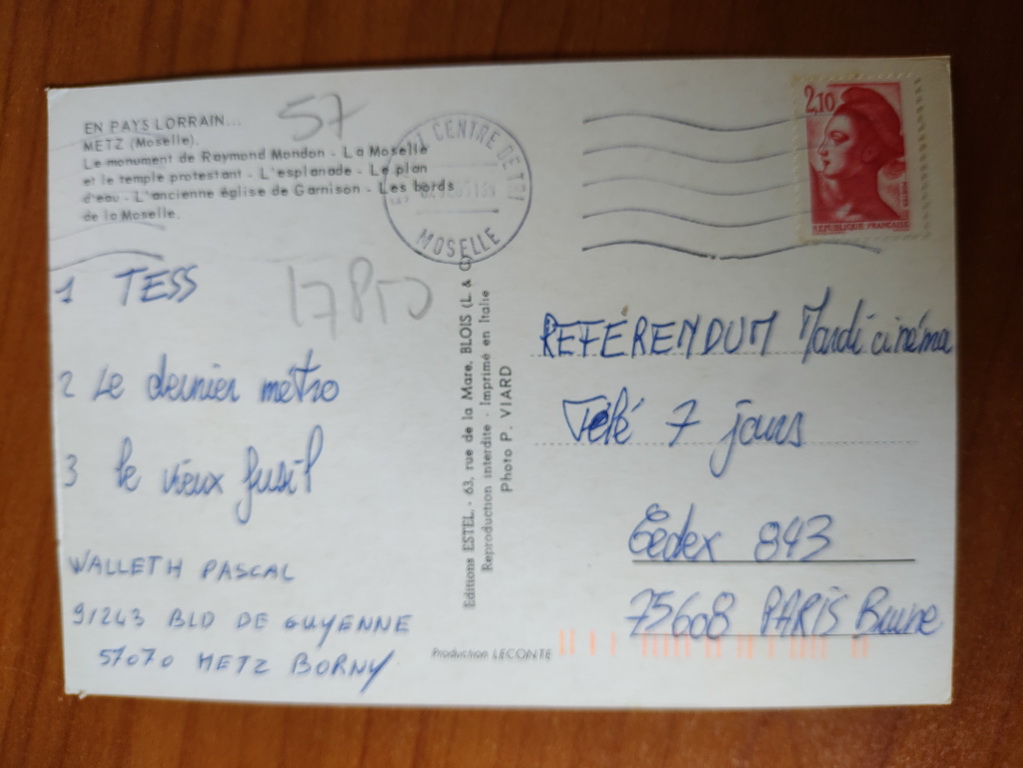 EN PAYS LORRAIN...
METZ (Moselle).
Le monument de Raymond Mondon - La Moselle
et le temple protestant - L'esplanade - Le plan
d'eau - L'ancienne église de Garnison - Les bords
de la Moselle.
57
CENTRE DE TRI
MOSELLE
2,10
REPUBLIQUE FRANÇAISE
1 TESS
17850
2 Le dernier métro
3 le vieux fusil
WALLETH PASCAL
9/243 BLD DE GUYENNE
57070 METZ BORNY
Editions ESTEL - 63, rue de la Mare, BLOIS (L. & C)
Reproduction interdite - Imprimé en Italie
Photo P. VIARD
Production LECONTE
REFÉRENDUM Mardi cinéma
Télé 7 jours
Cedex 843
75608 PARIS Brune